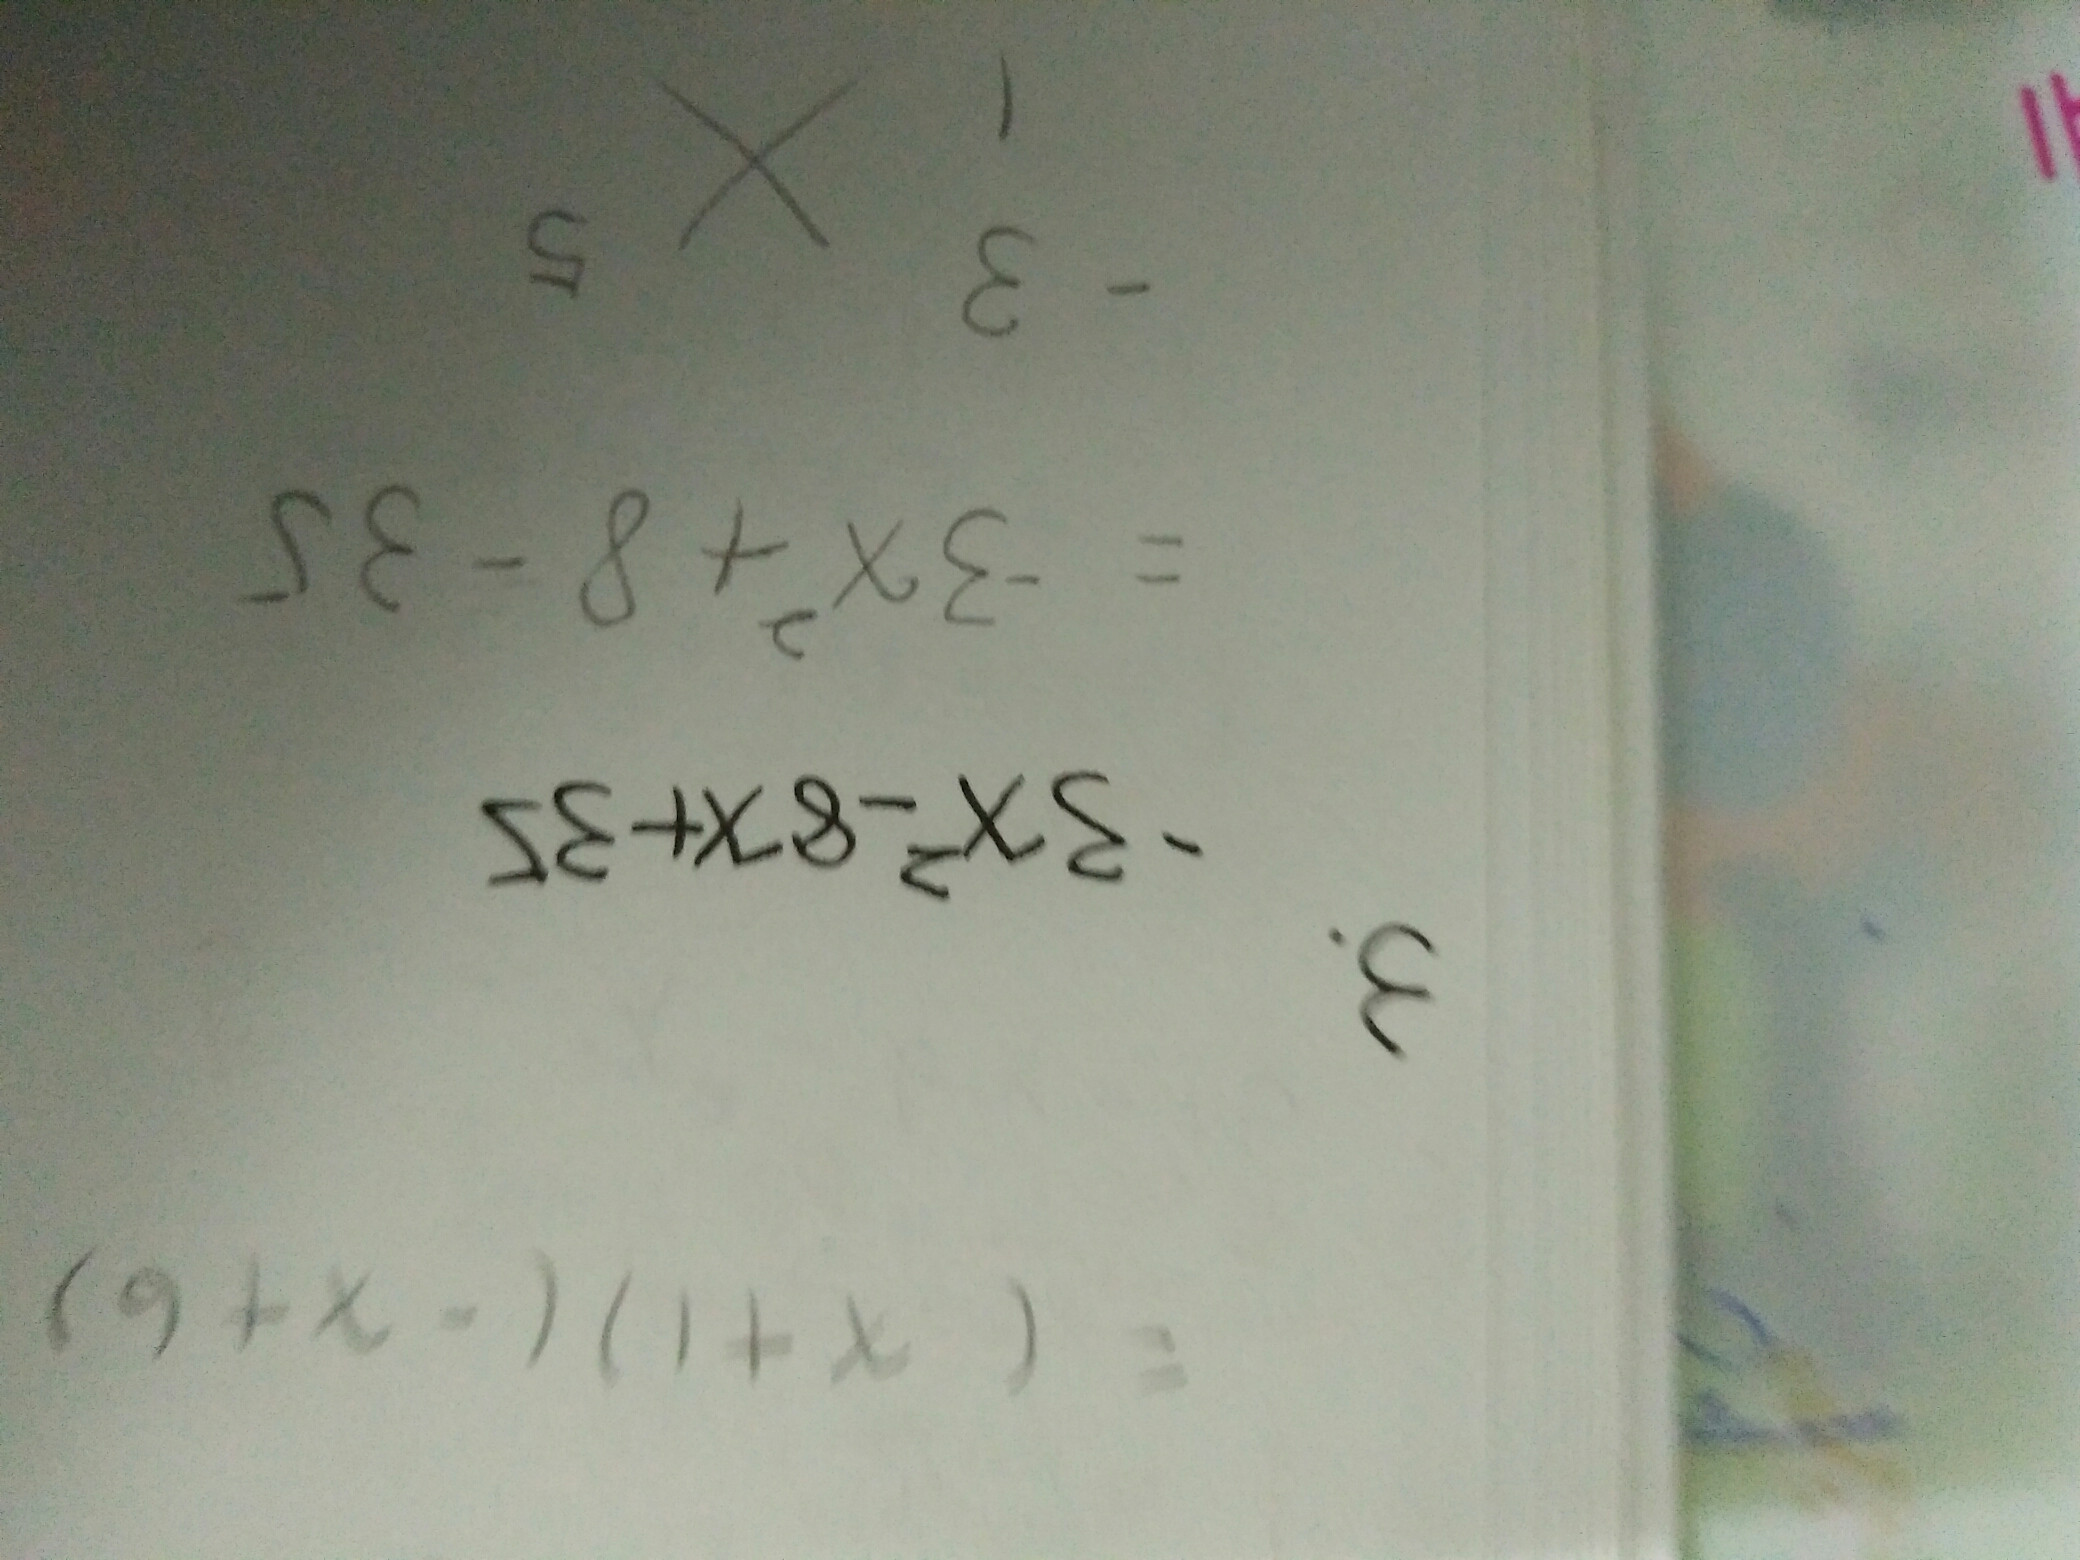 = (x+1)(-x+6)
3.
-3x²-8x+35
= -3x²+8-35
-3 5
1